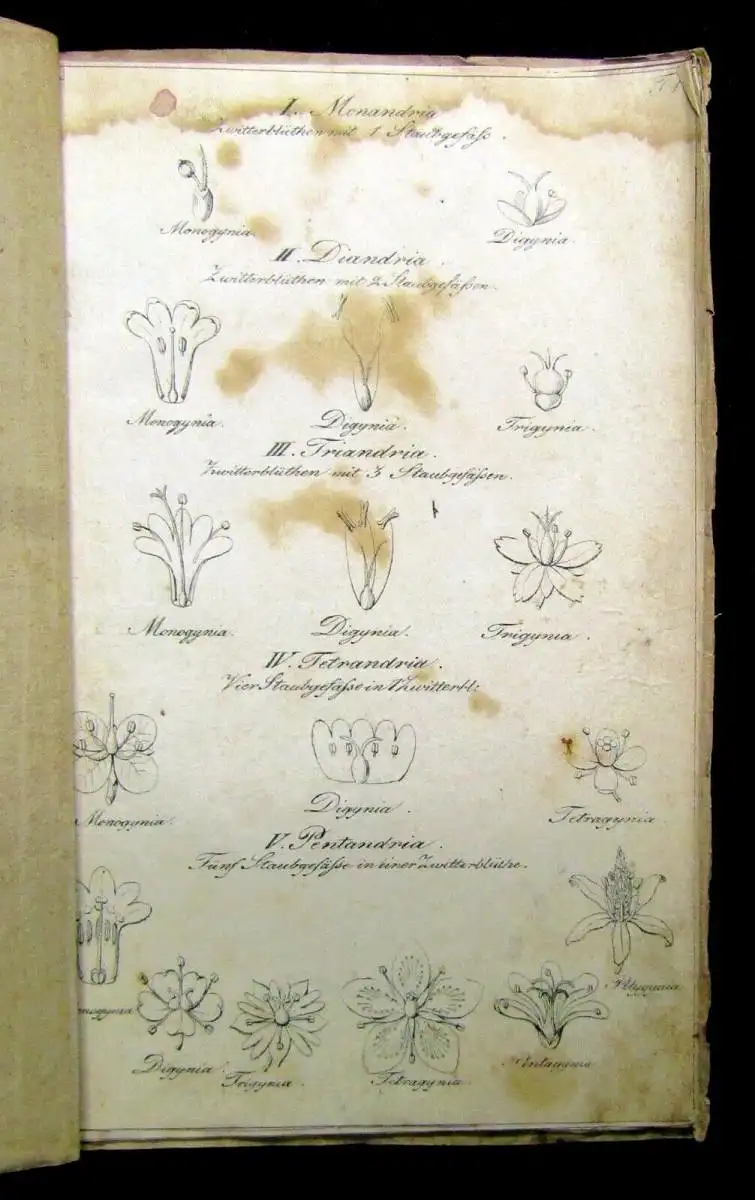 I. Monandria
Zwitterblüthen mit 1 Staubgefäss.
Monogynia.
Digynia.
II. Diandria.
Zwitterblüthen mit 2 Staubgefässen.
Monogynia.
Digynia.
Trigynia.
III. Triandria.
Zwitterblüthen mit 3 Staubgefässen.
Monogynia.
Digynia.
Trigynia.
IV. Tetrandria.
Vier Staubgefässe in 1 Zwitterbl:
Monogynia.
Digynia.
Tetragynia.
V. Pentandria.
Fünf Staubgefässe in einer Zwitterblüthe.
Polygynia.
Digynia.
Trigynia.
Tetragynia.
Pentagynia